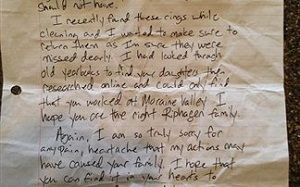 should not have.
I recently found these rings while
cleaning and I wanted to make sure to
return them as Im sure they were
missed dearly. I had looked through
old yearbooks to find your daughter then
researched online and could only find
that you worked at Moraine Valley. I
hope you are the right Riphagen family.
Again, I am so truly sorry for
any pain, heartache that my actions may
have caused your family. I hope that
you can find it in your hearts to